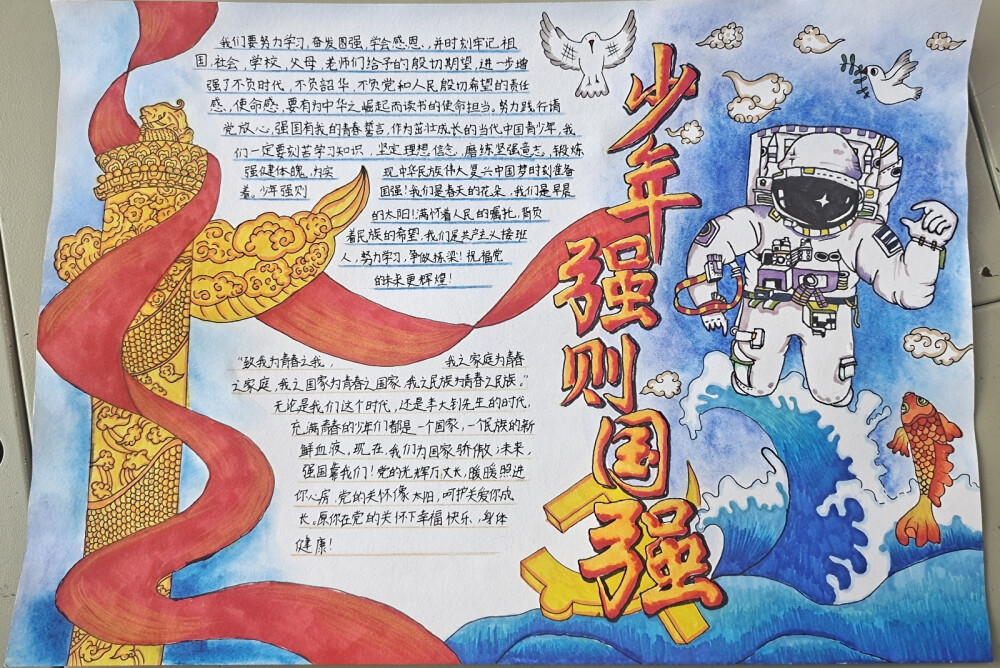 我们要努力学习，奋发图强，学会感恩，并时刻牢记祖
国，社会，学校，父母，老师们给予的殷切期望，进一步增
强了不负时代，不负韶华，不负党和人民殷切希望的责任
感，使命感，要有为中华之崛起而读书的使命担当。努力践行请
党放心，强国有我的青春誓言，作为茁壮成长的当代中国青少年，我
们一定要刻苦学习知识，坚定理想信念，磨练坚强意志，锻炼
强健体魄，为实 现中华民族伟大复兴中国梦时刻准备
着。少年强则 国强！我们是春天的花朵，我们是早晨
的太阳！满怀着人民的嘱托，背负
着民族的希望，我们是共产主义接班
人，努力学习，争做栋梁！祝福党
的未来更辉煌！
“致我为青春之我， 我之家庭为青春
之家庭，我之国家为青春之国家，我之民族为青春之民族。”
无论是我们这个时代，还是李大钊先生的时代，
充满青春的少年们都是一个国家，一个民族的新
鲜血液，现在，我们为国家骄傲；未来，
强国靠我们！党的光辉万丈长，暖暖照进
你心房，党的关怀像太阳，呵护关爱你成
长。原你在党的关怀下幸福快乐、身体
健康！
少年强则国强